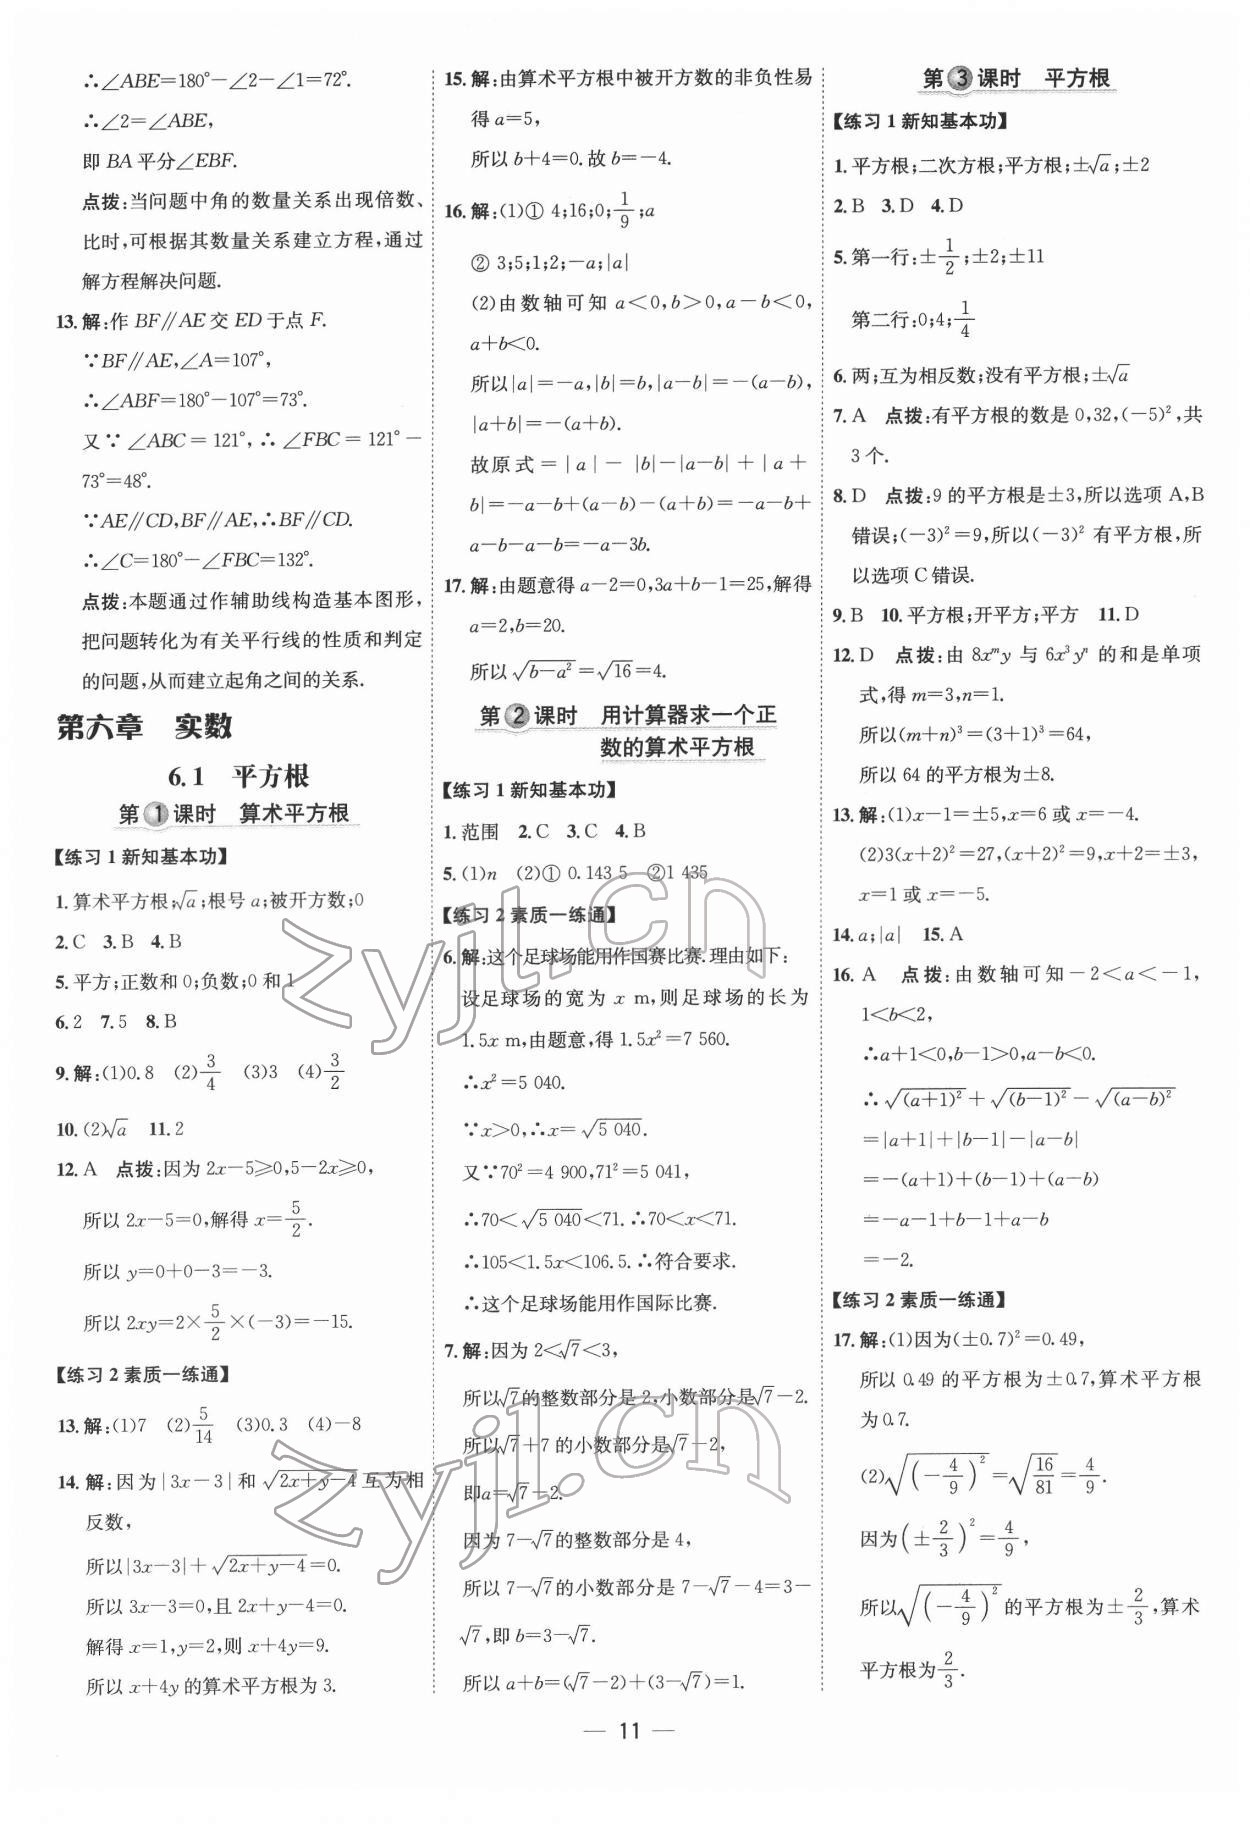 ∴∠ABE=180°−∠2−∠1=72°.
∴∠2=∠ABE,
即 BA 平分∠EBF.
点拨:当问题中角的数量关系出现倍数、
比时,可根据其数量关系建立方程,通过
解方程解决问题.
13.解:作 BF∥AE 交 ED 于点 F.
∵BF∥AE,∠A=107°,
∴∠ABF=180°−107°=73°.
又∵∠ABC=121°,∴∠FBC=121°−
73°=48°.
∵AE∥CD,BF∥AE,∴BF∥CD.
∴∠C=180°−∠FBC=132°.
点拨:本题通过作辅助线构造基本图形,
把问题转化为有关平行线的性质和判定
的问题,从而建立起角之间的关系.
第六章 实数
6.1 平方根
第1课时 算术平方根
【练习1新知基本功】
1.算术平方根;√a;根号a;被开方数;0
2.C 3.B 4.B
5.平方;正数和0;负数;0和1
6.2 7.5 8.B
9.解:(1)0.8 (2)3/4 (3)3 (4)3/2
10.(2)√a 11.2
12.A 点拨:因为2x−5≥0,5−2x≥0,
所以2x−5=0,解得x=5/2.
所以y=0+0−3=−3.
所以2xy=2×5/2×(−3)=−15.
【练习2素质一练通】
13.解:(1)7 (2)5/14 (3)0.3 (4)−8
14.解:因为|3x−3|和√(2x+y−4)互为相
反数,
所以|3x−3|+√(2x+y−4)=0.
所以3x−3=0,且2x+y−4=0.
解得x=1,y=2,则x+4y=9.
所以x+4y的算术平方根为3.
15.解:由算术平方根中被开方数的非负性易
得a=5,
所以b+4=0.故b=−4.
16.解:(1)① 4;16;0;1/9;a
② 3;5;1;2;−a;|a|
(2)由数轴可知a<0,b>0,a−b<0,
a+b<0.
所以|a|=−a,|b|=b,|a−b|=−(a−b),
|a+b|=−(a+b).
故原式=|a|−|b|−|a−b|+|a+
b|=−a−b+(a−b)−(a+b)=−a−b+
a−b−a−b=−a−3b.
17.解:由题意得a−2=0,3a+b−1=25,解得
a=2,b=20.
所以√(b−a²)=√16=4.
第2课时 用计算器求一个正
数的算术平方根
【练习1新知基本功】
1.范围 2.C 3.C 4.B
5.(1)n (2)① 0.143 5 ②1 435
【练习2素质一练通】
6.解:这个足球场能用作国赛比赛.理由如下:
设足球场的宽为x m,则足球场的长为
1.5x m,由题意,得1.5x²=7 560.
∴x²=5 040.
∵x>0,∴x=√5 040.
又∵70²=4 900,71²=5 041,
∴70<√5 040<71.∴70<x<71.
∴105<1.5x<106.5.∴符合要求.
∴这个足球场能用作国际比赛.
7.解:因为2<√7<3,
所以√7的整数部分是2,小数部分是√7−2.
所以√7+7的小数部分是√7−2,
即a=√7−2.
因为7−√7的整数部分是4,
所以7−√7的小数部分是7−√7−4=3−
√7,即b=3−√7.
所以a+b=(√7−2)+(3−√7)=1.
第3课时 平方根
【练习1新知基本功】
1.平方根;二次方根;平方根;±√a;±2
2.B 3.D 4.D
5.第一行:±1/2;±2;±11
第二行:0;4;1/4
6.两;互为相反数;没有平方根;±√a
7.A 点拨:有平方根的数是0,32,(−5)²,共
3个.
8.D 点拨:9的平方根是±3,所以选项A,B
错误;(−3)²=9,所以(−3)²有平方根,所
以选项C错误.
9.B 10.平方根;开平方;平方 11.D
12.D 点拨:由8xᵐy与6x³yⁿ的和是单项
式,得m=3,n=1.
所以(m+n)³=(3+1)³=64,
所以64的平方根为±8.
13.解:(1)x−1=±5,x=6或x=−4.
(2)3(x+2)²=27,(x+2)²=9,x+2=±3,
x=1或x=−5.
14.a;|a| 15.A
16.A 点拨:由数轴可知−2<a<−1,
1<b<2,
∴a+1<0,b−1>0,a−b<0.
∴√(a+1)²+√(b−1)²−√(a−b)²
=|a+1|+|b−1|−|a−b|
=−(a+1)+(b−1)+(a−b)
=−a−1+b−1+a−b
=−2.
【练习2素质一练通】
17.解:(1)因为(±0.7)²=0.49,
所以0.49的平方根为±0.7,算术平方根
为0.7.
(2)√(−4/9)²=√(16/81)=4/9.
因为(±2/3)²=4/9,
所以√(−4/9)²的平方根为±2/3,算术
平方根为2/3.
— 11 —
zyjl.cn
zyjl.cn